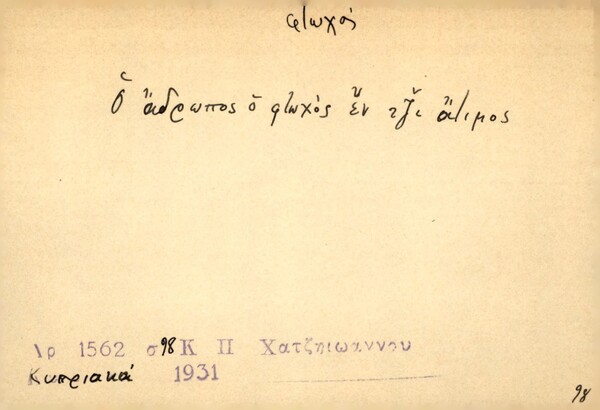 φτωχός
Ὁ ἄδρωπος ὁ φτωχός ἔν τζ̌ι ἄτιμος
Ἀρ 1562 σ 98 Κ Π Χατζηιωαννου
Κυπριακά 1931
98